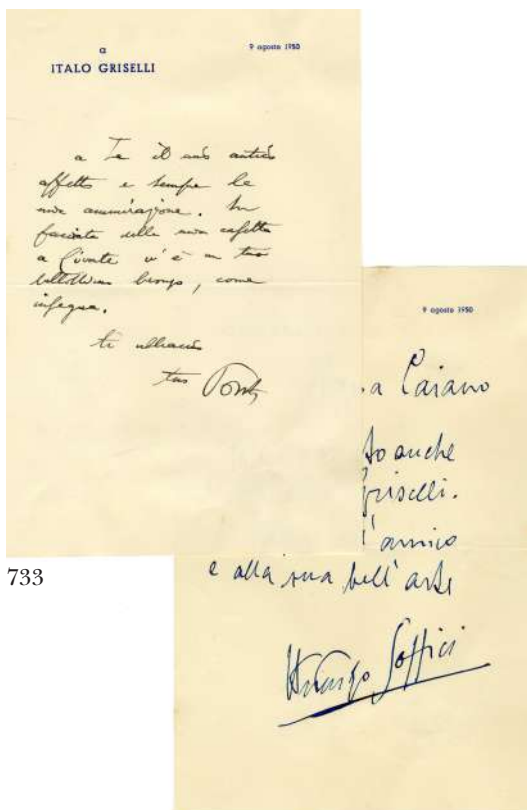 a
ITALO GRISELLI
9 agosto 1950
a Te il mio antico
affetto e sempre la
mia ammirazione. Su
facciata della mia casetta
a Civate v'è un tuo
bellissimo bronzo, come
insegna.
ti abbraccio
tuo Ponti
733
9 agosto 1950
a Caiano
to anche
Griselli.
l'amico
e alla sua bell'arte
Ardengo Soffici